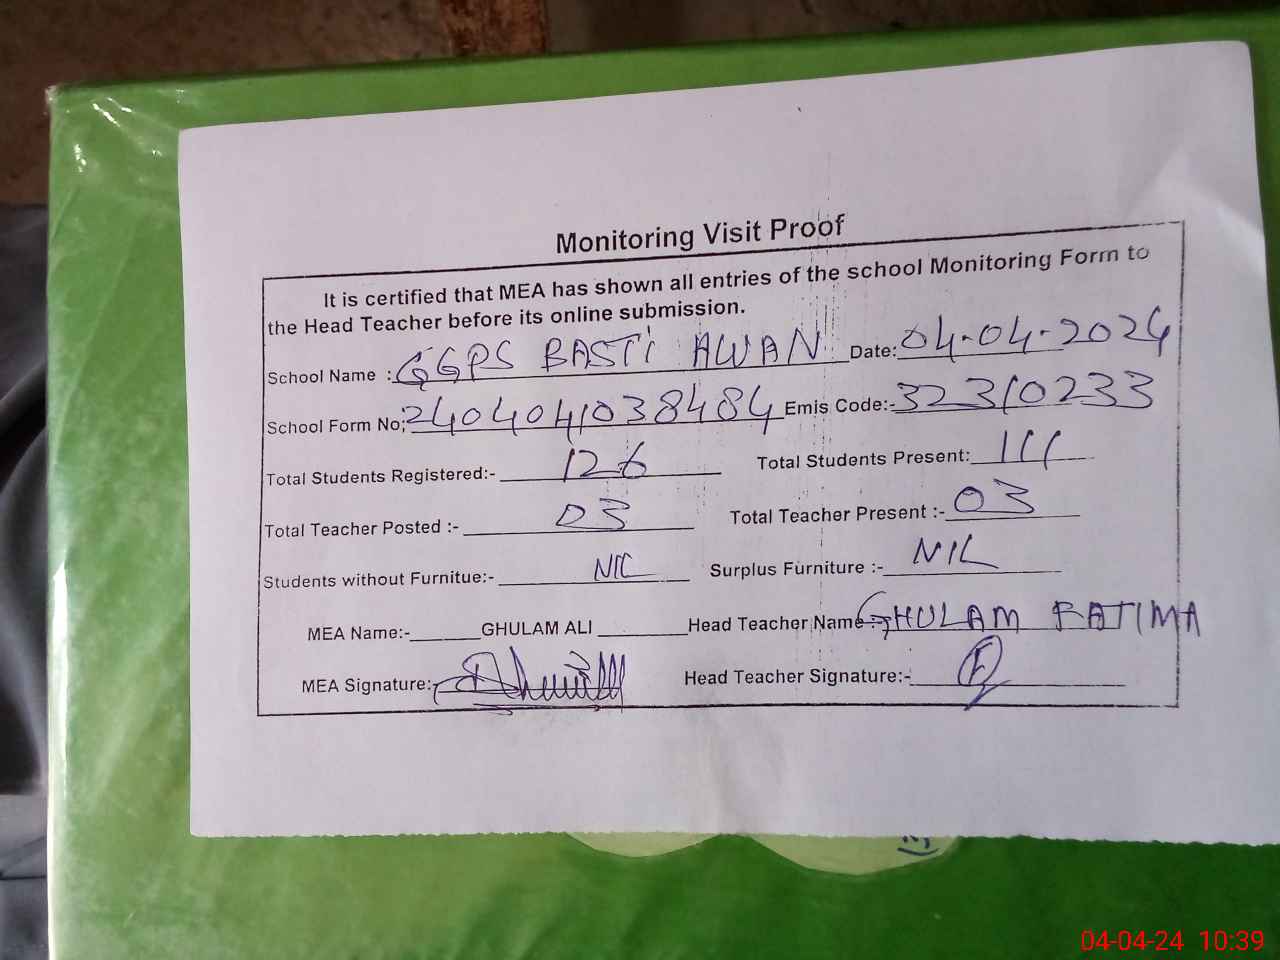 Monitoring Visit Proof
It is certified that MEA has shown all entries of the school Monitoring Form to
the Head Teacher before its online submission.
School Name : GGPS BASTI AWAN Date: 04-04-2024
School Form No; 2404041038484 Emis Code:- 32310233
Total Students Registered:- 126 Total Students Present: 111
Total Teacher Posted :- 03 Total Teacher Present :- 03
Students without Furnitue:- NIL Surplus Furniture :- NIL
MEA Name:- GHULAM ALI Head Teacher Name :- GHULAM FATIMA
MEA Signature:- Head Teacher Signature:-
04-04-24 10:39